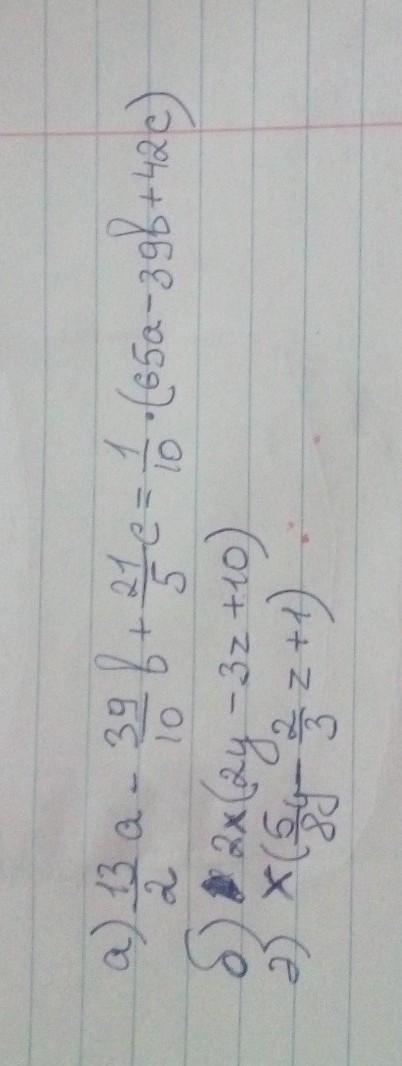 а) 13/2 a - 39/10 b + 21/5 c = 1/10 · (65a - 39b + 42c)
б) 2x(2y - 3z + 10)
г) x(5/8 y - 2/3 z + 1)